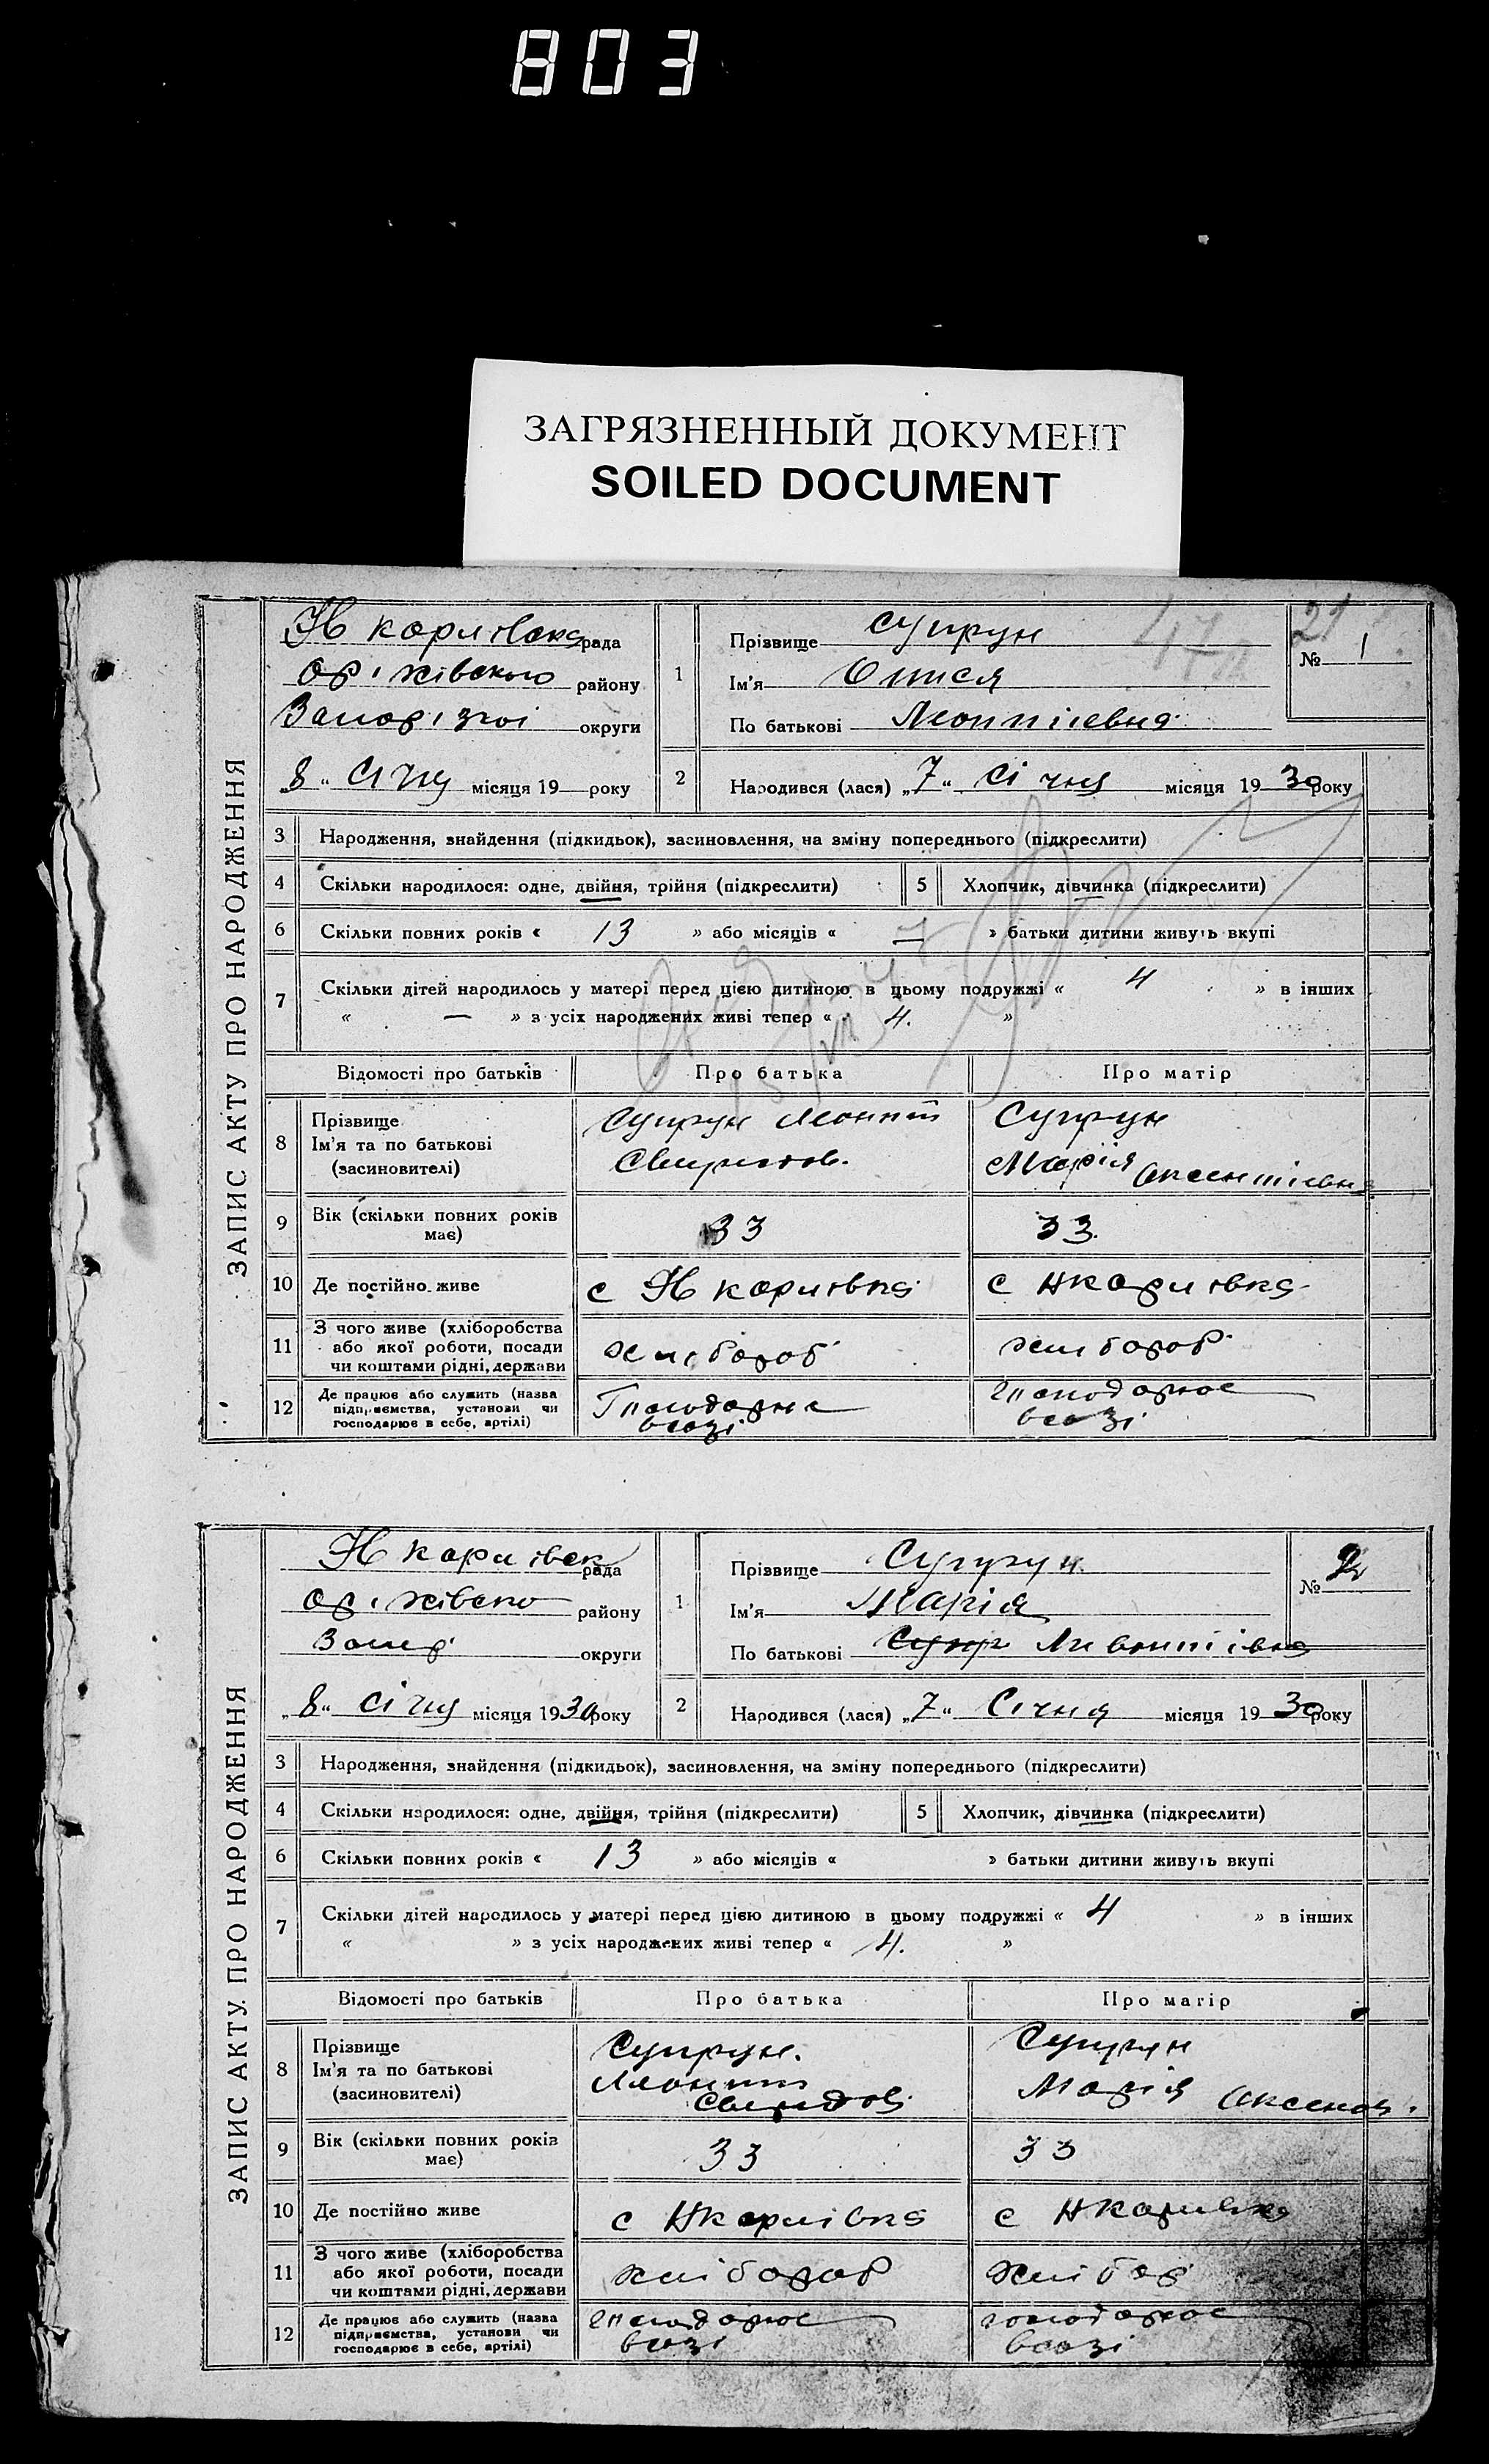 803
ЗАГРЯЗНЕННЫЙ ДОКУМЕНТ
SOILED DOCUMENT
ЗАПИС АКТУ ПРО НАРОДЖЕННЯ
Н карлівська рада
Оріхівського району
Запорізкої округи
„8“ Січня місяця 19 року
1
Прізвище Супрун
Ім’я Олися
По батькові Леонтіевна
21
№ 1
2
Народився (лася) „7“ Січня місяця 1930 року
3 Народження, знайдення (підкидьок), засиновлення, на зміну попереднього (підкреслити)
4 Скільки народилося: одне, двійня, трійня (підкреслити)
5 Хлопчик, дівчинка (підкреслити)
6 Скільки повних років « 13 » або місяців « — » батьки дитини живуть вкупі
7 Скільки дітей народилось у матері перед цією дитиною в цьому подружжі « 4 » в інших
« — » з усіх народжених живі тепер « 4. »
Відомості про батьків Про батька Про матір
8 Прізвище
Ім’я та по батькові
(засиновителі)
Супрун Леонтій
Супрун
Марія Оксентіевна
9 Вік (скільки повних років
має)
33 33.
10 Де постійно живе с Н карлівка с Нкарлівка
11 З чого живе (хліборобства
або якої роботи, посади
чи коштами рідні, держави
хлібороб хлібороб
12 Де працює або служить (назва
підприємства, установи чи
господарює в себе, артілі)
ЗАПИС АКТУ ПРО НАРОДЖЕННЯ
Н карлівск рада
Оріхівсько району
Запор округи
„8“ Січня місяця 1930 року
1
Прізвище Супрун.
Ім’я Марія
По батькові Супр Ливонтіівна
№ 2
2
Народився (лася) „7“ Січня місяця 1930 року
3 Народження, знайдення (підкидьок), засиновлення, на зміну попереднього (підкреслити)
4 Скільки народилося: одне, двійня, трійня (підкреслити)
5 Хлопчик, дівчинка (підкреслити)
6 Скільки повних років « 13 » або місяців « » батьки дитини живуть вкупі
7 Скільки дітей народилось у матері перед цією дитиною в цьому подружжі « 4 » в інших
« » з усіх народжених живі тепер « 4. »
Відомості про батьків Про батька Про матір
8 Прізвище
Ім’я та по батькові
(засиновителі)
Супрун.
Свиридов
Супрун
Марія Оксенов.
9 Вік (скільки повних років
має)
33 33
10 Де постійно живе с Нкарлівка с Нкарлівка
11 З чого живе (хліборобства
або якої роботи, посади
чи коштами рідні, держави
хлібороб хлібор
12 Де працює або служить (назва
підприємства, установи чи
господарює в себе, артілі)